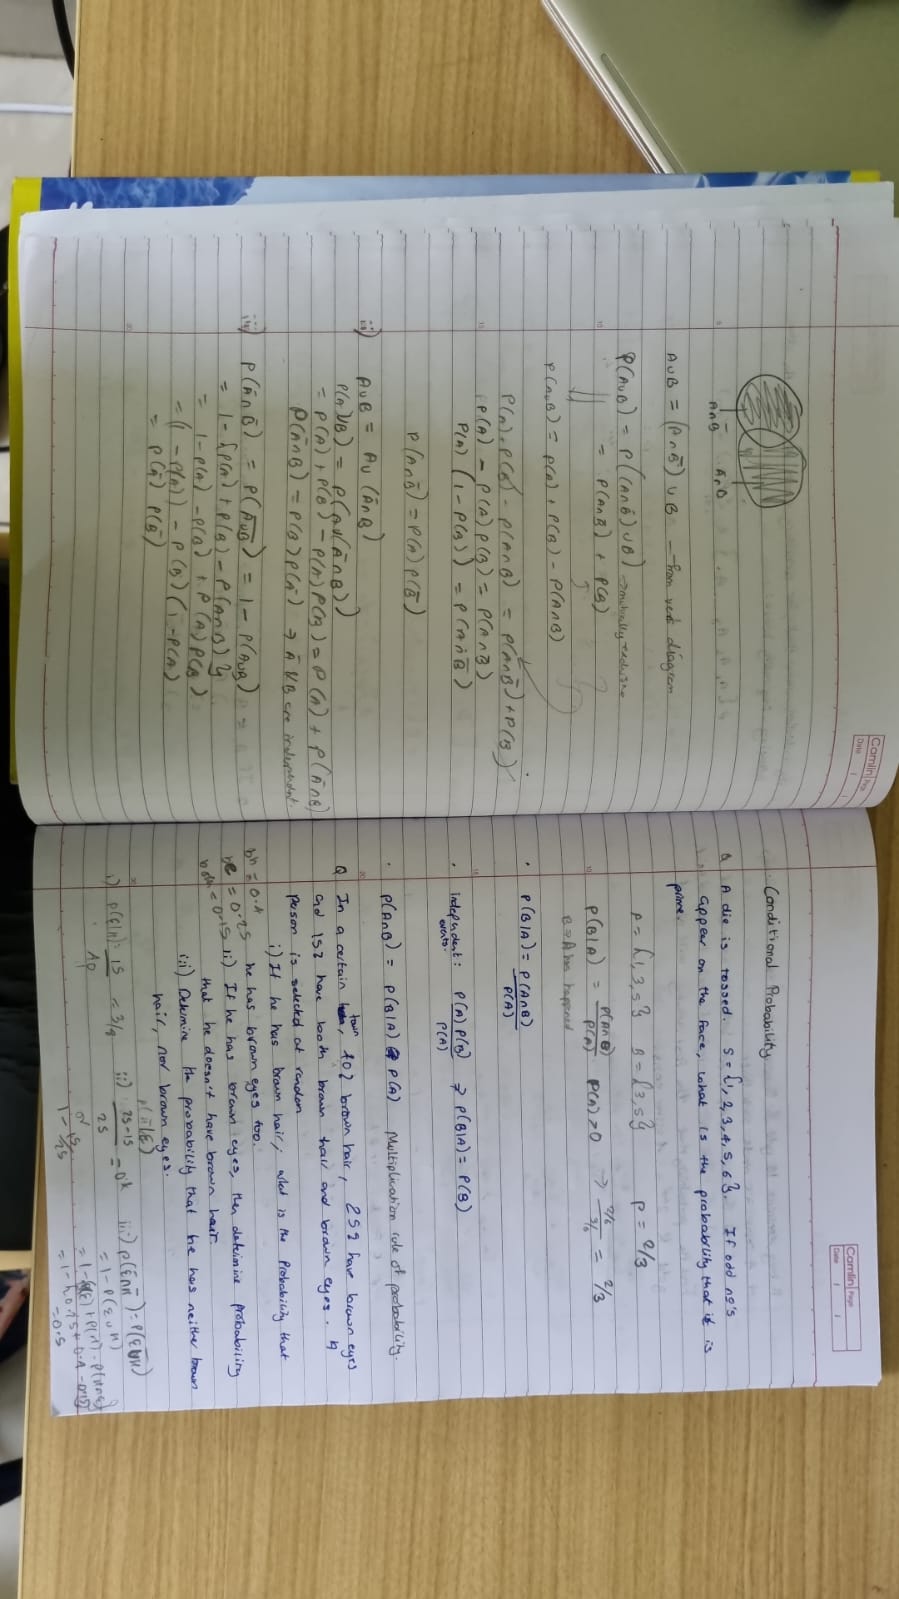 Camlin Page
Date / /
A∩B̄ Ā∩B
A∪B = (A∩B̄) ∪ B — from venn diagram
P(A∪B) = P((A∩B̄)∪B) → mutually exclusive
= P(A∩B̄) + P(B)
P(A∪B) = P(A) + P(B) - P(A∩B)
P(A) + P(B) - P(A∩B) = P(A∩B̄) + P(B)
P(A) - P(A)P(B) = P(A∩B̄)
P(A) (1 - P(B)) = P(A∩B̄)
P(A∩B̄) = P(A) P(B̄)
ii) A∪B = A∪(Ā∩B)
P(A∪B) = P(A∪(Ā∩B))
= P(A) + P(B) - P(A)P(B) = P(A) + P(Ā∩B)
P(Ā∩B) = P(B)P(Ā) → Ā & B are independent
iii) P(Ā∩B̄) = P(A∪B) = 1 - P(A∪B)
= 1 - {P(A) + P(B) - P(A∩B)}
= 1 - P(A) - P(B) + P(A)P(B)
= (1 - P(A)) - P(B)(1 - P(A))
= P(Ā) P(B̄)
Camlin Page
Date / /
Conditional Probability
Q A die is tossed. S = {1, 2, 3, 4, 5, 6}. If odd no's
appear on the face, what is the probability that it is
prime.
A = {1, 3, 5} B = {3, 5} P = 2/3
P(B|A) = P(A∩B)/P(A) P(A) > 0 → 2/6 / 3/6 = 2/3
B → A has happened
· P(B|A) = P(A∩B)/P(A)
· independent events: P(A) P(B)/P(A) ⇒ P(B|A) = P(B)
· P(A∩B) = P(B|A) P(A) Multiplication rule of probability.
Q In a certain town, 40% brown hair, 25% have brown eyes
and 15% have both brown hair and brown eyes. A
person is selected at random
i) If he has brown hair, what is the probability that
bh = 0.4 he has brown eyes too.
be = 0.25 ii) If he has brown eyes, then determine probability
both = 0.15 that he doesn't have brown hair.
iii) Determine the probability that he has neither brown
hair, nor brown eyes.
P(H̄|E)
i) P(E|H) = 15/40 = 3/8 ii) 25-15/25 = iii) P(Ē∩H̄) = P(E∪H)
= 1 - P(E∪H)
or
1 - 15/25
= 0.5